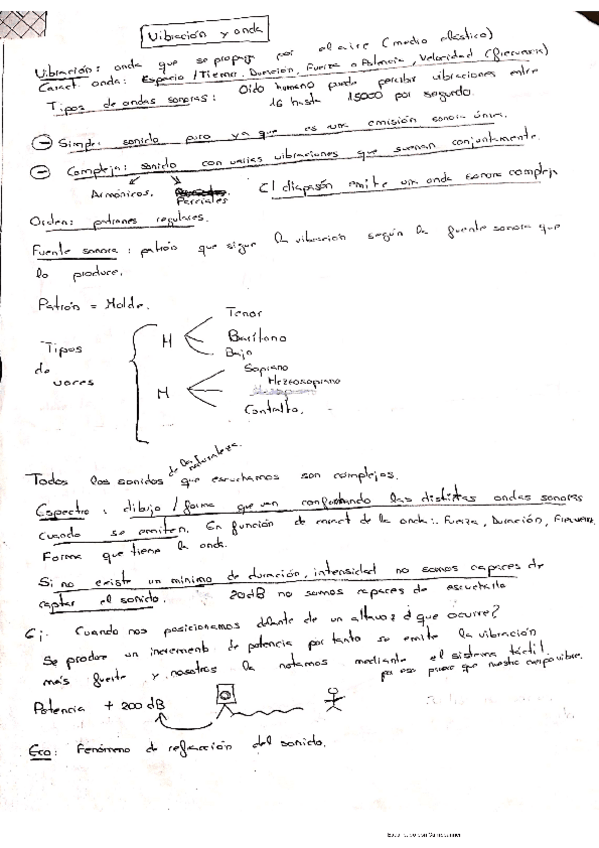 Vibración y onda
Vibración: onda que se propaga por el aire (medio elástico)
Caract. onda: Espacio / Tiempo. Duración, Fuerza o Potencia, Velocidad (frecuencia)
Tipos de ondas sonoras: Oido humano puede percibir vibraciones entre
16 hasta 15000 por segundo.
- Simple: sonido puro ya que es una emisión sonora única.
- Compleja: sonido con varias vibraciones que suenan conjuntamente.
Armónicos. Parciales
El diapasón emite una onda sonora compleja
Orden: patrones regulares.
Fuente sonora: patrón que sigue la vibración según la fuente sonora que
lo produce.
Patrón = Molde.
Tipos
de
voces
H
Tenor
Barítono
Bajo
M
Soprano
Mezzosoprano
Contralto.
Todos los sonidos de la naturaleza que escuchamos son complejos.
Espectro: dibujo / forma que van conformando las distintas ondas sonoras
cuando se emiten. En función de caract de la onda: Fuerza, Duración,
Forma que tiene la onda.
Si no existe un mínimo de duración, intensidad no somos capaces de
captar el sonido. 20dB no somos capaces de escucharlo
Ej. Cuando nos posicionamos delante de un altavoz ¿que ocurre?
Se produce un incremento de potencia por tanto se emite la vibración
más fuerte y nosotros la notamos mediante el sistema táctil.
por eso parece que nuestro cuerpo vibre.
Potencia + 200 dB
Eco: Fenómeno de refracción del sonido.